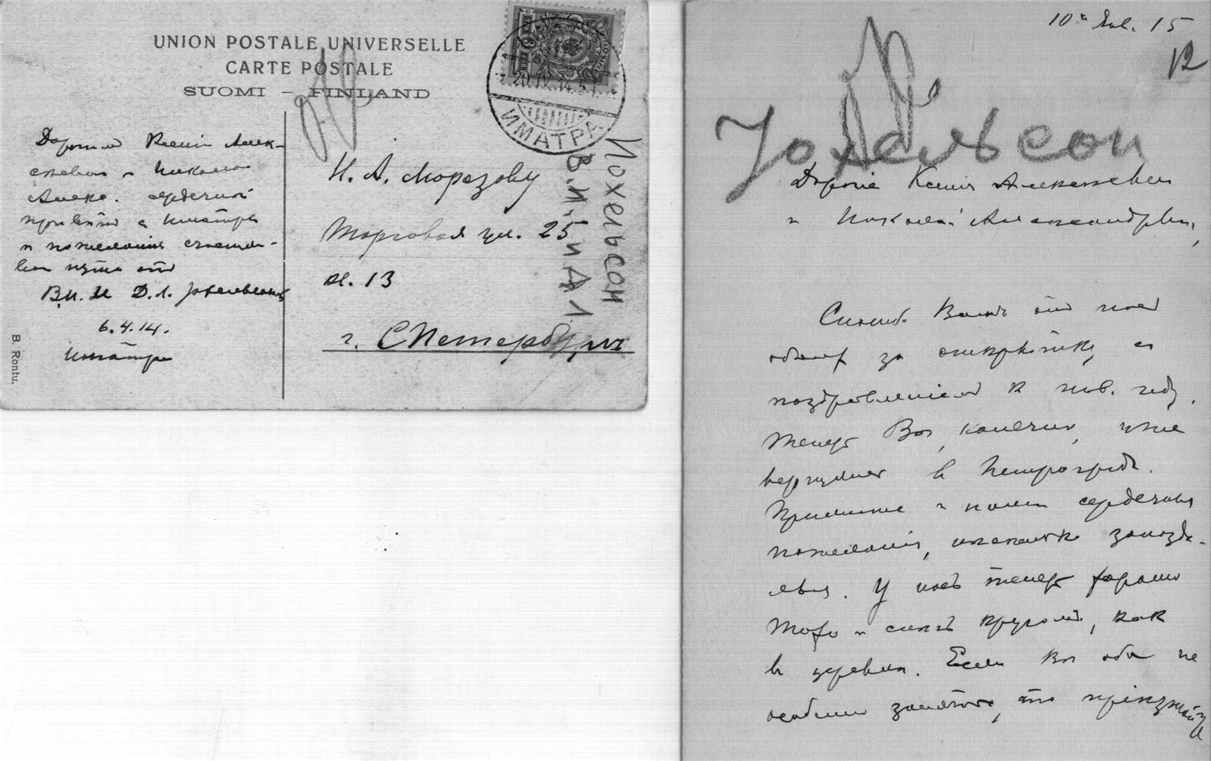 UNION POSTALE UNIVERSELLE
CARTE POSTALE
SUOMI – FINLAND
ИМАТРА
Дорогим Ксеніи Алек-
сеевнѣ и Николаю
Алекс. сердечный
привѣтъ с Иматры
и пожеланія счастли-
ваго пути отъ
В.И. и Д.Л. Іохельсонъ
6.4.14.
Иматра
B. Rontu.
Н. А. Морозову
Торговая ул. 25
кв. 13
г. СПетербургъ
Иохельсон
В.И. и Д Л
10го Янв. 15
12
Иохельсон
Дорогіе Ксенія Алексѣевна
и Николай Александровичъ,
Спасибо Вамъ отъ насъ
обоихъ за открытку с
поздравленіемъ к нов. году.
Теперь Вы, конечно, уже
вернулись в Петроградъ.
Примите и наши сердечныя
пожеланія, нѣсколько запозда-
лыя. У насъ теперь хорошо
тихо и снѣгъ кругомъ, как
в деревнѣ. Если Вы оба не
особенно заняты, то пріѣзжайте